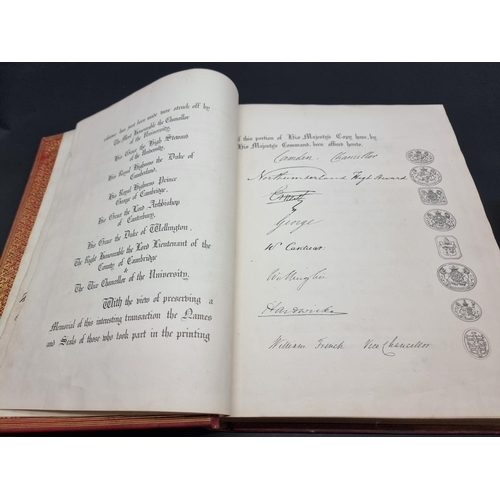 volume has just been under view struck off by
The Most Honourable the Chancellor
of the University
His Grace the High Steward
of the University
His Royal Highness the Duke of
Cumberland,
His Royal Highness Prince
George of Cambridge,
His Grace the Lord Archbishop
of Canterbury,
His Grace the Duke of Wellington,
The Right Honorable the Lord Lieutenant of the
County of Cambridge
&
The Vice Chancellor of the University,
With the view of preserving a
Memorial of this interesting transaction the Names
and Seals of those who took part in the printing
of this portion of His Majesty's Copy have, by
His Majesty's Command, been affixed hereto.
Camden, Chancellor
Northumberland High Steward
Ernest
George
W. Cantuar
Wellington
Hardwicke
William French Vice Chancellor